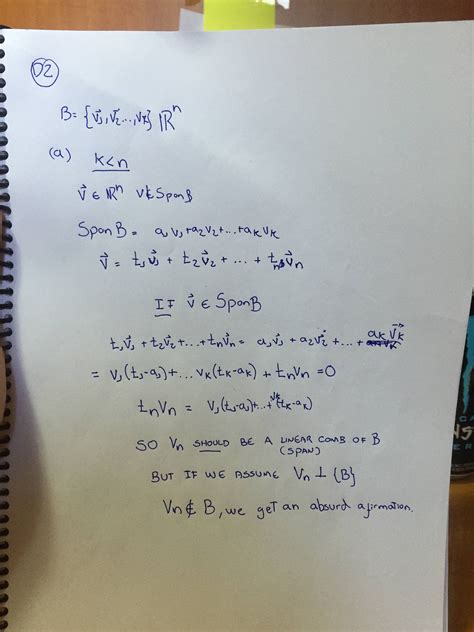 D2
B = {v⃗₁, v⃗₂ ..., vₖ} ℝⁿ
(a) k<n
v⃗ ∈ ℝⁿ v∉ Span B
Span B = a₁v₁+a₂v₂+...+aₖvₖ
v⃗ = t₁v⃗₁ + t₂v⃗₂ + ... + tₙv⃗ₙ
IF v⃗ ∈ Span B
t₁v⃗₁ + t₂v⃗₂ + ... + tₙv⃗ₙ = a₁v⃗₁ + a₂v⃗₂ + ... + aₖv⃗ₖ
= v₁(t₁-a₁)+... vₖ(tₖ-aₖ) + tₙvₙ =0
tₙvₙ = v₁(t₁-a₁)+...+vₖ(tₖ-aₖ)
SO Vₙ SHOULD BE A LINEAR COMB OF B
(SPAN)
BUT IF WE ASSUME Vₙ ⊥ {B}
Vₙ ∉ B, we get an absurd afirmation.